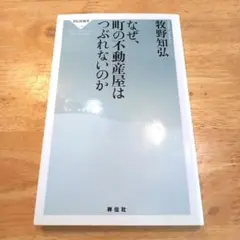 牧野知弘
なぜ、
町の不動産屋は
つぶれないのか
祥伝社